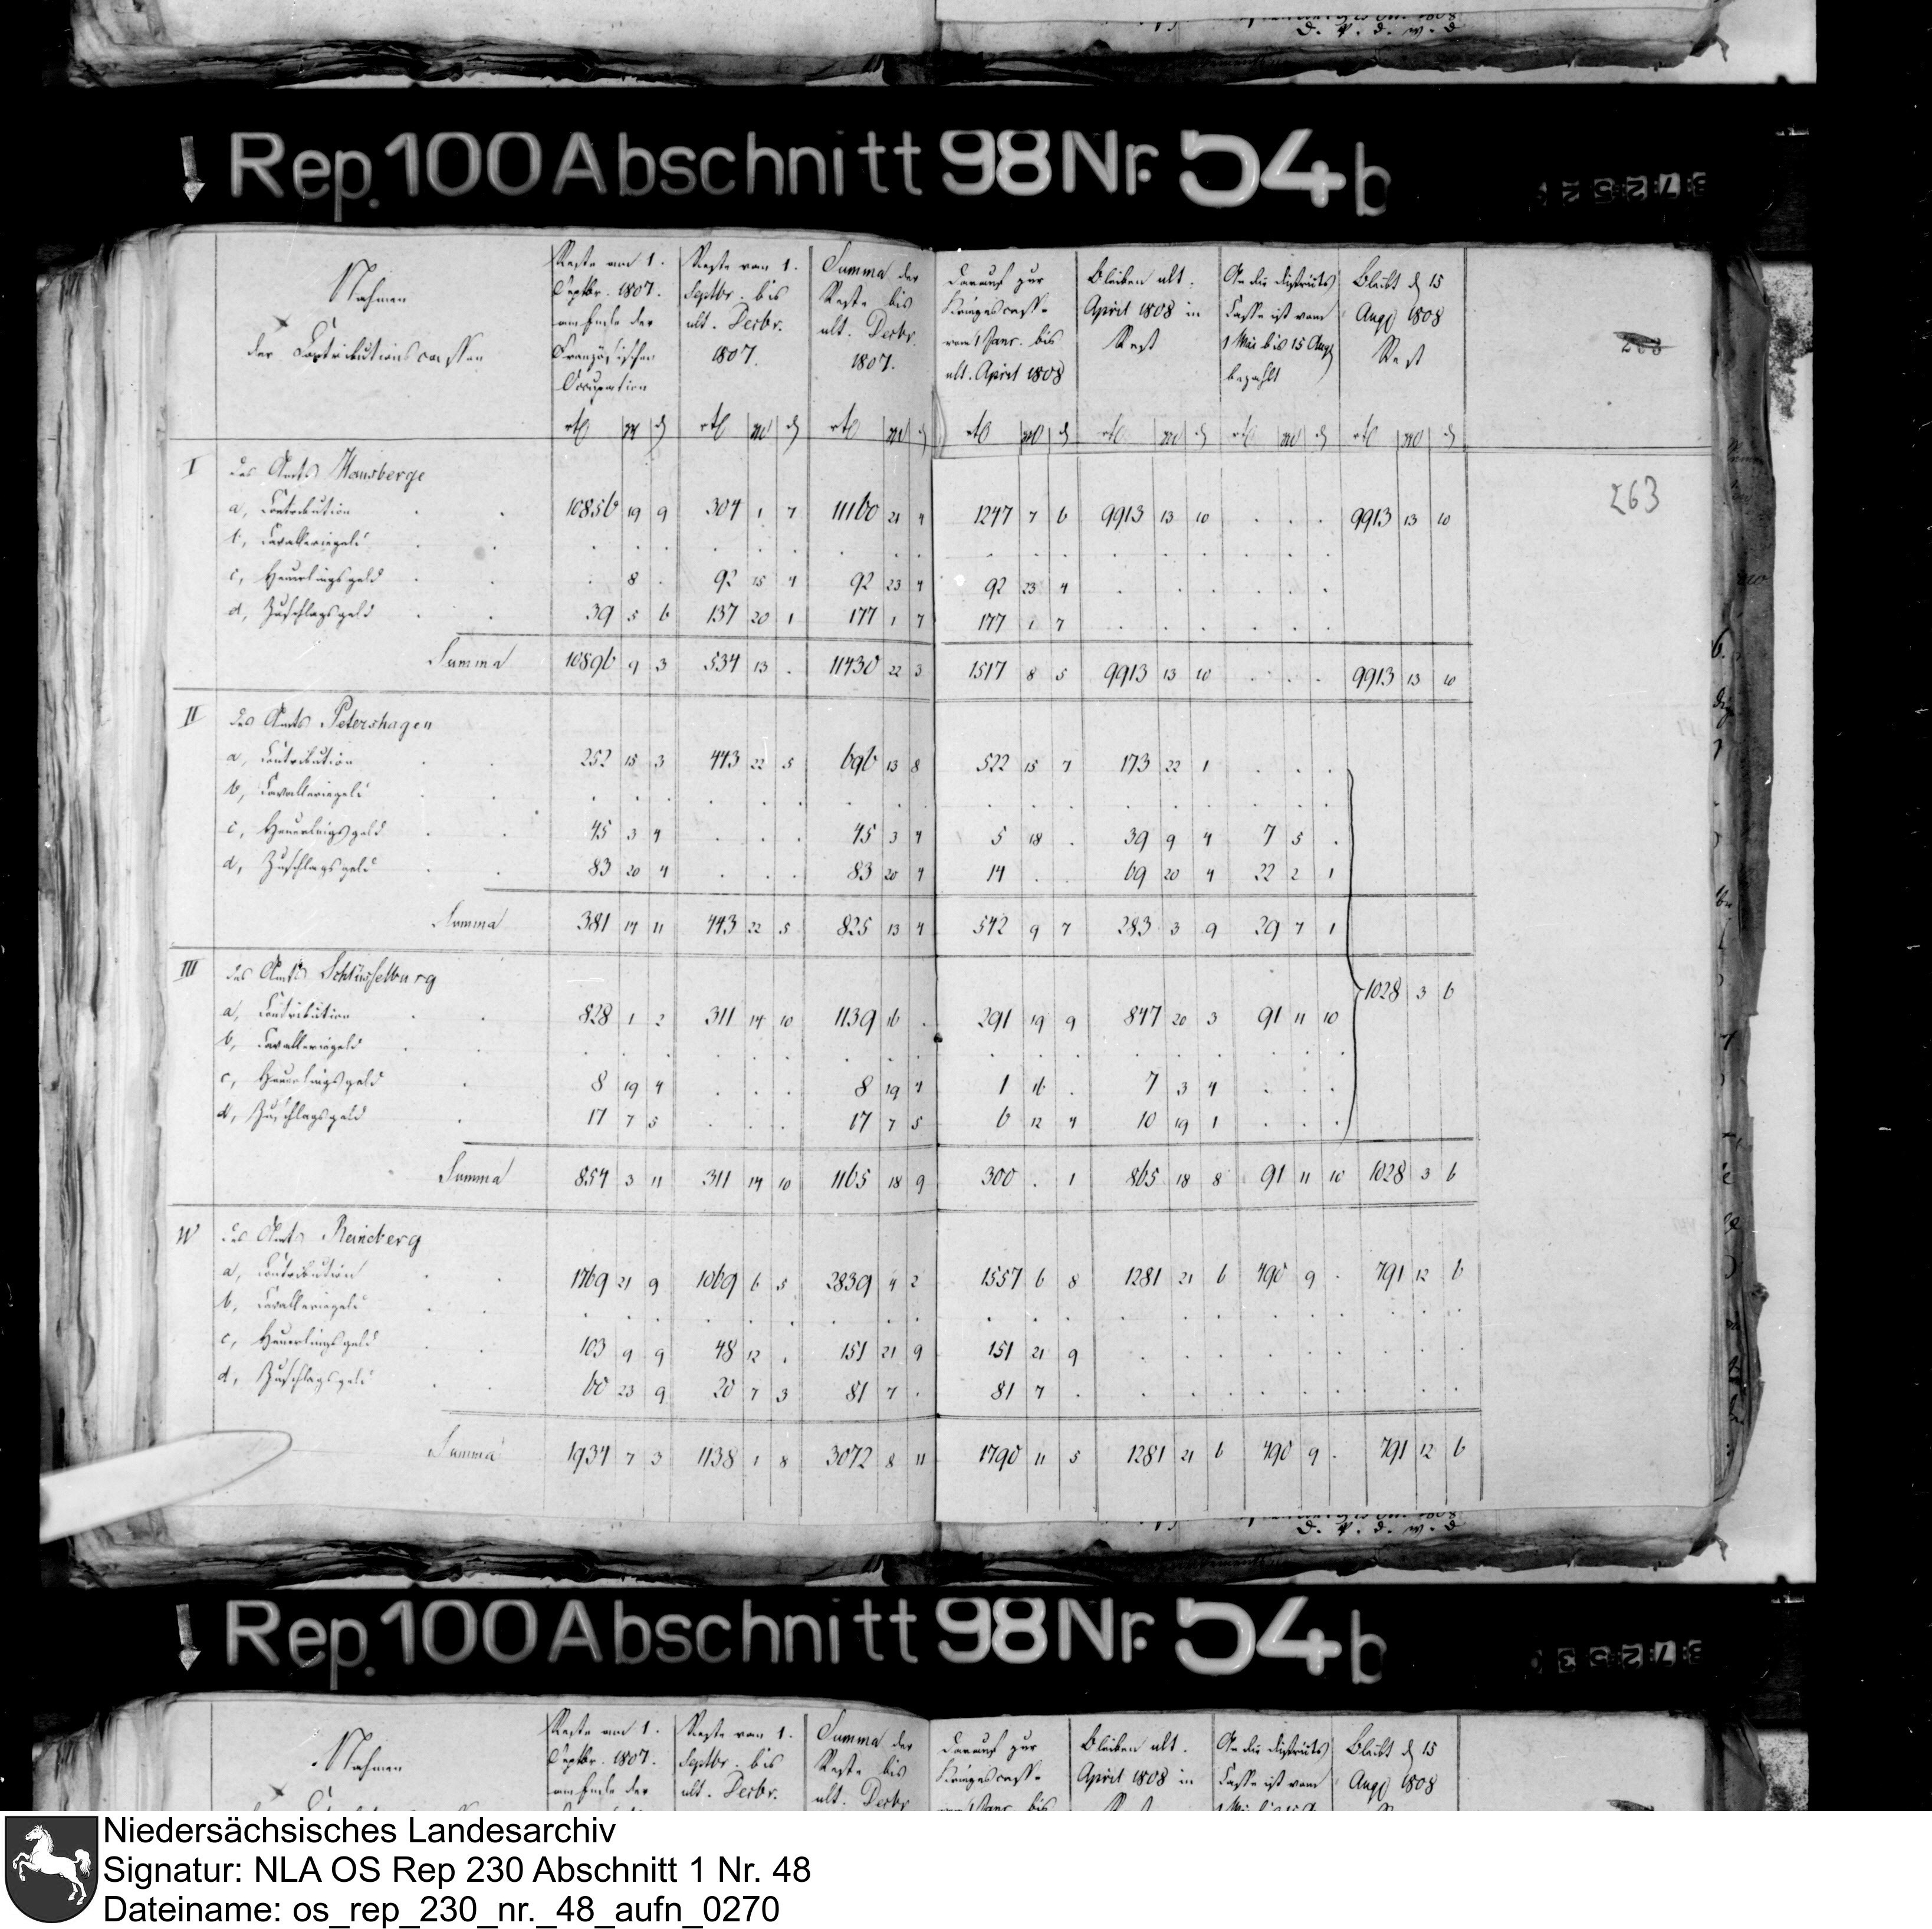 d. p. d. m. d
Rep. 100 Abschnitt 98 Nr. 54 b
Nahmen
der Contributionscassen
Reste am 1.
Septbr. 1807.
am Ende der
Französischen
Occupation
Reste vom 1.
Septbr. bis
ult. Decbr.
1807.
Summa der
Reste bis
ult. Decbr.
1807.
Darauf zur
Kriegescasse
vom 1 Janr. bis
ult. April 1808
Bleiben ult.
April 1808 in
Rest
An die districts
Casse ist vom
1 Mai bis 15 Aug
bezahlt
Bleibt d 15
Aug 1808
Rest
263
I des Amts Hausberge
a, Contribution 10856 19 9 304 1 7 11160 21 4 1247 7 6 9913 13 10 . . . 9913 13 10
b, Cavalleriegeld . . . . . . . . . . . . . . . . . .
c, Heuerlingsgeld . 8 . 92 15 4 92 23 4 92 23 4 . . . . . .
d, Zuschlagsgeld 39 5 6 137 20 1 177 1 7 177 1 7 . . . . . .
Summa 10896 9 3 534 13 . 11430 22 3 1517 8 5 9913 13 10 . . . 9913 13 10
II des Amts Petershagen
a, Contribution 252 15 3 443 22 5 696 13 8 522 15 7 173 22 1 . . .
b, Cavalleriegeld . . . . . . . . . . . . . . . . . .
c, Heuerlingsgeld 45 3 4 . . . 45 3 4 5 18 . 39 9 4 7 5 .
d, Zuschlagsgeld 83 20 4 . . . 83 20 4 14 . . 69 20 4 22 2 1
Summa 381 14 11 443 22 5 825 13 4 542 9 7 283 3 9 29 7 1
III des Amts Schlüsselburg
1028 3 6
a, Contribution 828 1 2 311 14 10 1139 16 . 291 19 9 847 20 3 91 11 10
b, Cavalleriegeld . . . . . . . . . . . . . . . . . .
c, Heuerlingsgeld 8 19 4 . . . 8 19 4 1 16 . 7 3 4 . . .
d, Zuschlagsgeld 17 7 5 . . . 17 7 5 6 12 4 10 19 1 . . .
Summa 854 3 11 311 14 10 1165 18 9 300 . 1 865 18 8 91 11 10 1028 3 6
IV des Amts Reineberg
a, Contribution 1769 21 9 1069 6 5 2839 4 2 1557 6 8 1281 21 6 490 9 . 791 12 6
b, Cavalleriegeld . . . . . . . . . . . . . . . . . . . . .
c, Heuerlingsgeld 103 9 9 48 12 . 151 21 9 151 21 9 . . . . . . . . .
d, Zuschlagsgeld 60 23 9 20 7 3 81 7 . 81 7 . . . . . . . . . .
Summa 1934 7 3 1138 1 8 3072 8 11 1790 11 5 1281 21 6 490 9 . 791 12 6
d. p. d. m. d
Rep. 100 Abschnitt 98 Nr. 54 b
Nahmen
Reste am 1.
Septbr. 1807.
am Ende der
Reste vom 1.
Septbr. bis
ult. Decbr.
Summa der
Reste bis
ult. Decbr
Darauf zur
Kriegescasse
Bleiben ult.
April 1808 in
An die districts
Casse ist vom
Bleibt d 15
Aug 1808
Niedersächsisches Landesarchiv
Signatur: NLA OS Rep 230 Abschnitt 1 Nr. 48
Dateiname: os_rep_230_nr._48_aufn_0270